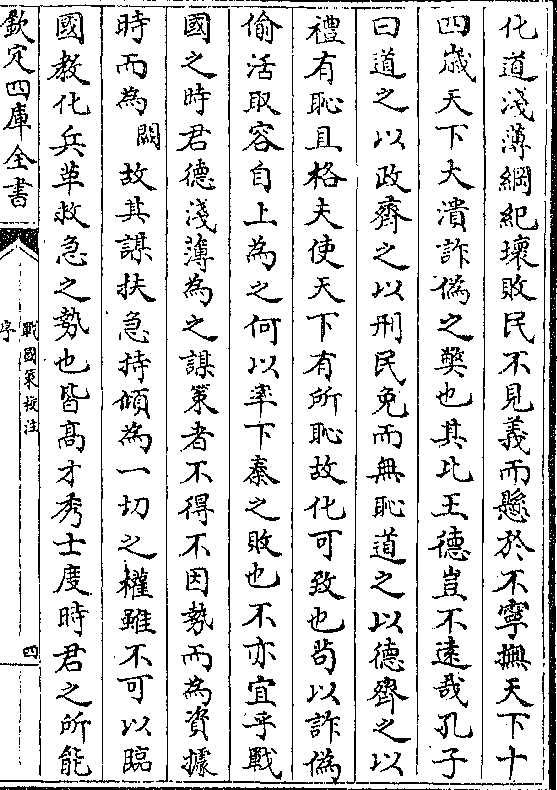 化道淺薄綱紀壞敗民不見義而懸於不寧撫天下十
四歲天下大潰詐僞之獘也其比王德豈不遠哉孔子
曰道之以政齊之以刑民免而無恥道之以德齊之以
禮有恥且格夫使天下有所恥故化可致也茍以詐僞
偷活取容自上為之何以率下秦之敗也不亦宜乎戰
國之時君德淺薄為之謀策者不得不因勢而為資據
時而為闕故其謀扶急持傾為一切之權雖不可以臨
國教化兵革救急之勢也皆髙才秀士度時君之所能
欽定四庫全書
戰國策校注
序
四